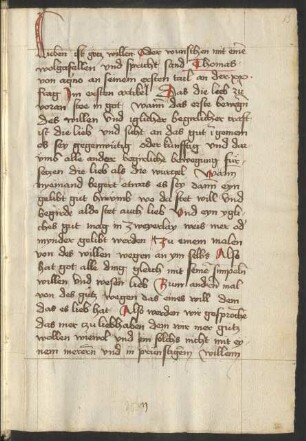 Lieben ist gotz willen Oder wunschen mit eine
wolgefallen und spricht sand Thomas
von aqno an seinem ersten tail an der xx
frag Im ersten artikel Das die lieb zu
voran stee in got Wann das erste bewegn
des willen und iglicher begirlicher craft
ist die lieb und sicht an das gut i gemein
ob sey gegenwürtig oder künftig und dar
umb alle ander begirliche bewegung für
seczen die lieb als die wurczel Wann
nyemand begert etwas es sey dann eyn
gelibt gut hirumb wo do stet will und
begirde aldo stet auch lieb Und eyn ygli
ches gut mag in zweyerlay weis mer od
mynder gelibt werden Zu einem malen
von des willen wegen an ym selbs Also
hat got alle ding gleich mit seine simpeln
willen und wesen lieb Zum andern mal
von des gutz wegen das eines will dem
das es lieb hat Also werden wir gesproche
das mer czu liebhaben dem wir mer gutz
wollen wiewol und ym solchs nicht mit ey
nem merern und in prünstigem willenn